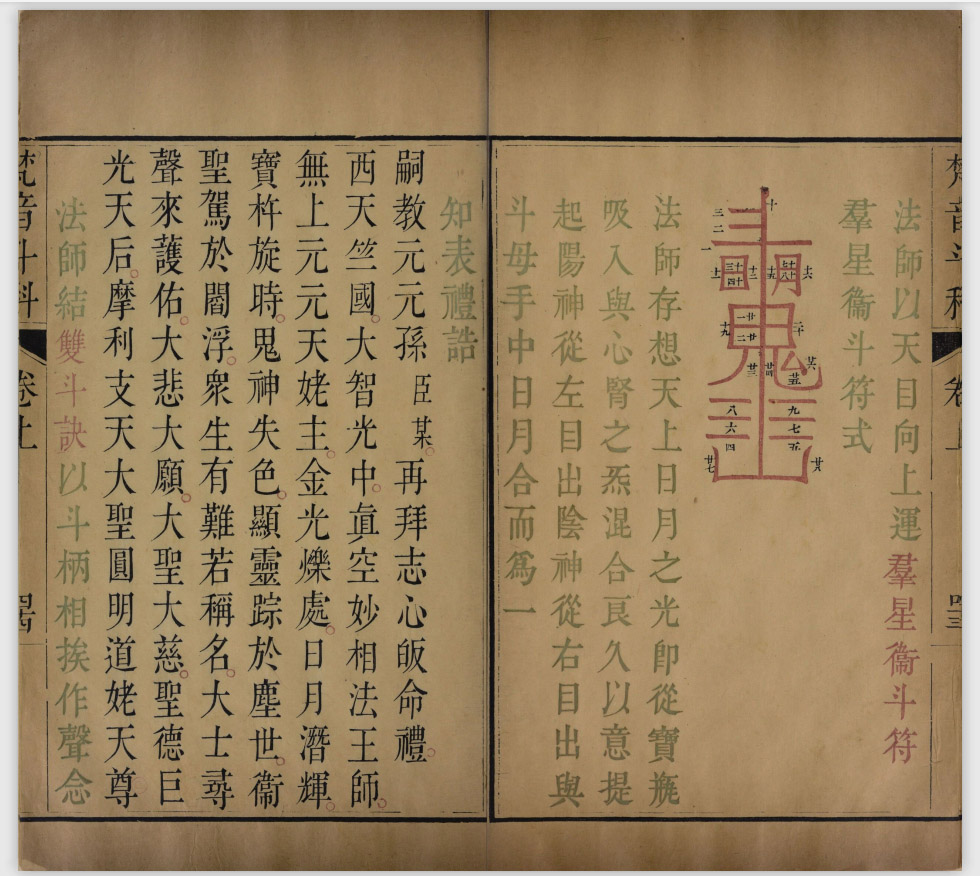 梵音斗科
卷上
法師以天目向上運羣星衞斗符
羣星衞斗符式
法師存想天上日月之光卽從寶瓶
吸入與心腎之炁混合良久以意提
起陽神從左目出陰神從右目出與
斗母手中日月合而爲一
知表禮誥
嗣教元元孫臣某。再拜志心皈命禮。
西天竺國。大智光中。眞空妙相法王師。
無上元元天姥主。金光爍處。日月潛輝。
寶杵旋時。鬼神失色。顯靈踪於塵世。衞
聖駕於閻浮。衆生有難若稱名。大士尋
聲來護佑。大悲大願。大聖大慈。聖德巨
光天后。摩利支天大聖圓明道姥天尊
法師結雙斗訣以斗柄相挨作聲念
梵音斗科
卷上